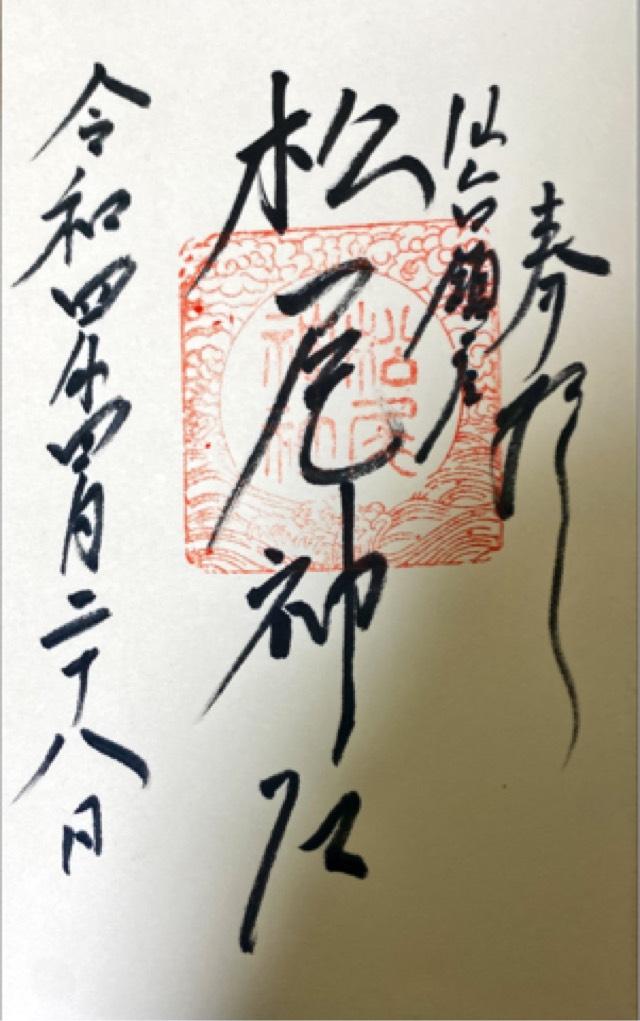 奉拝
仙台鎮座
松尾神社
松尾神社
令和四年四月二十八日